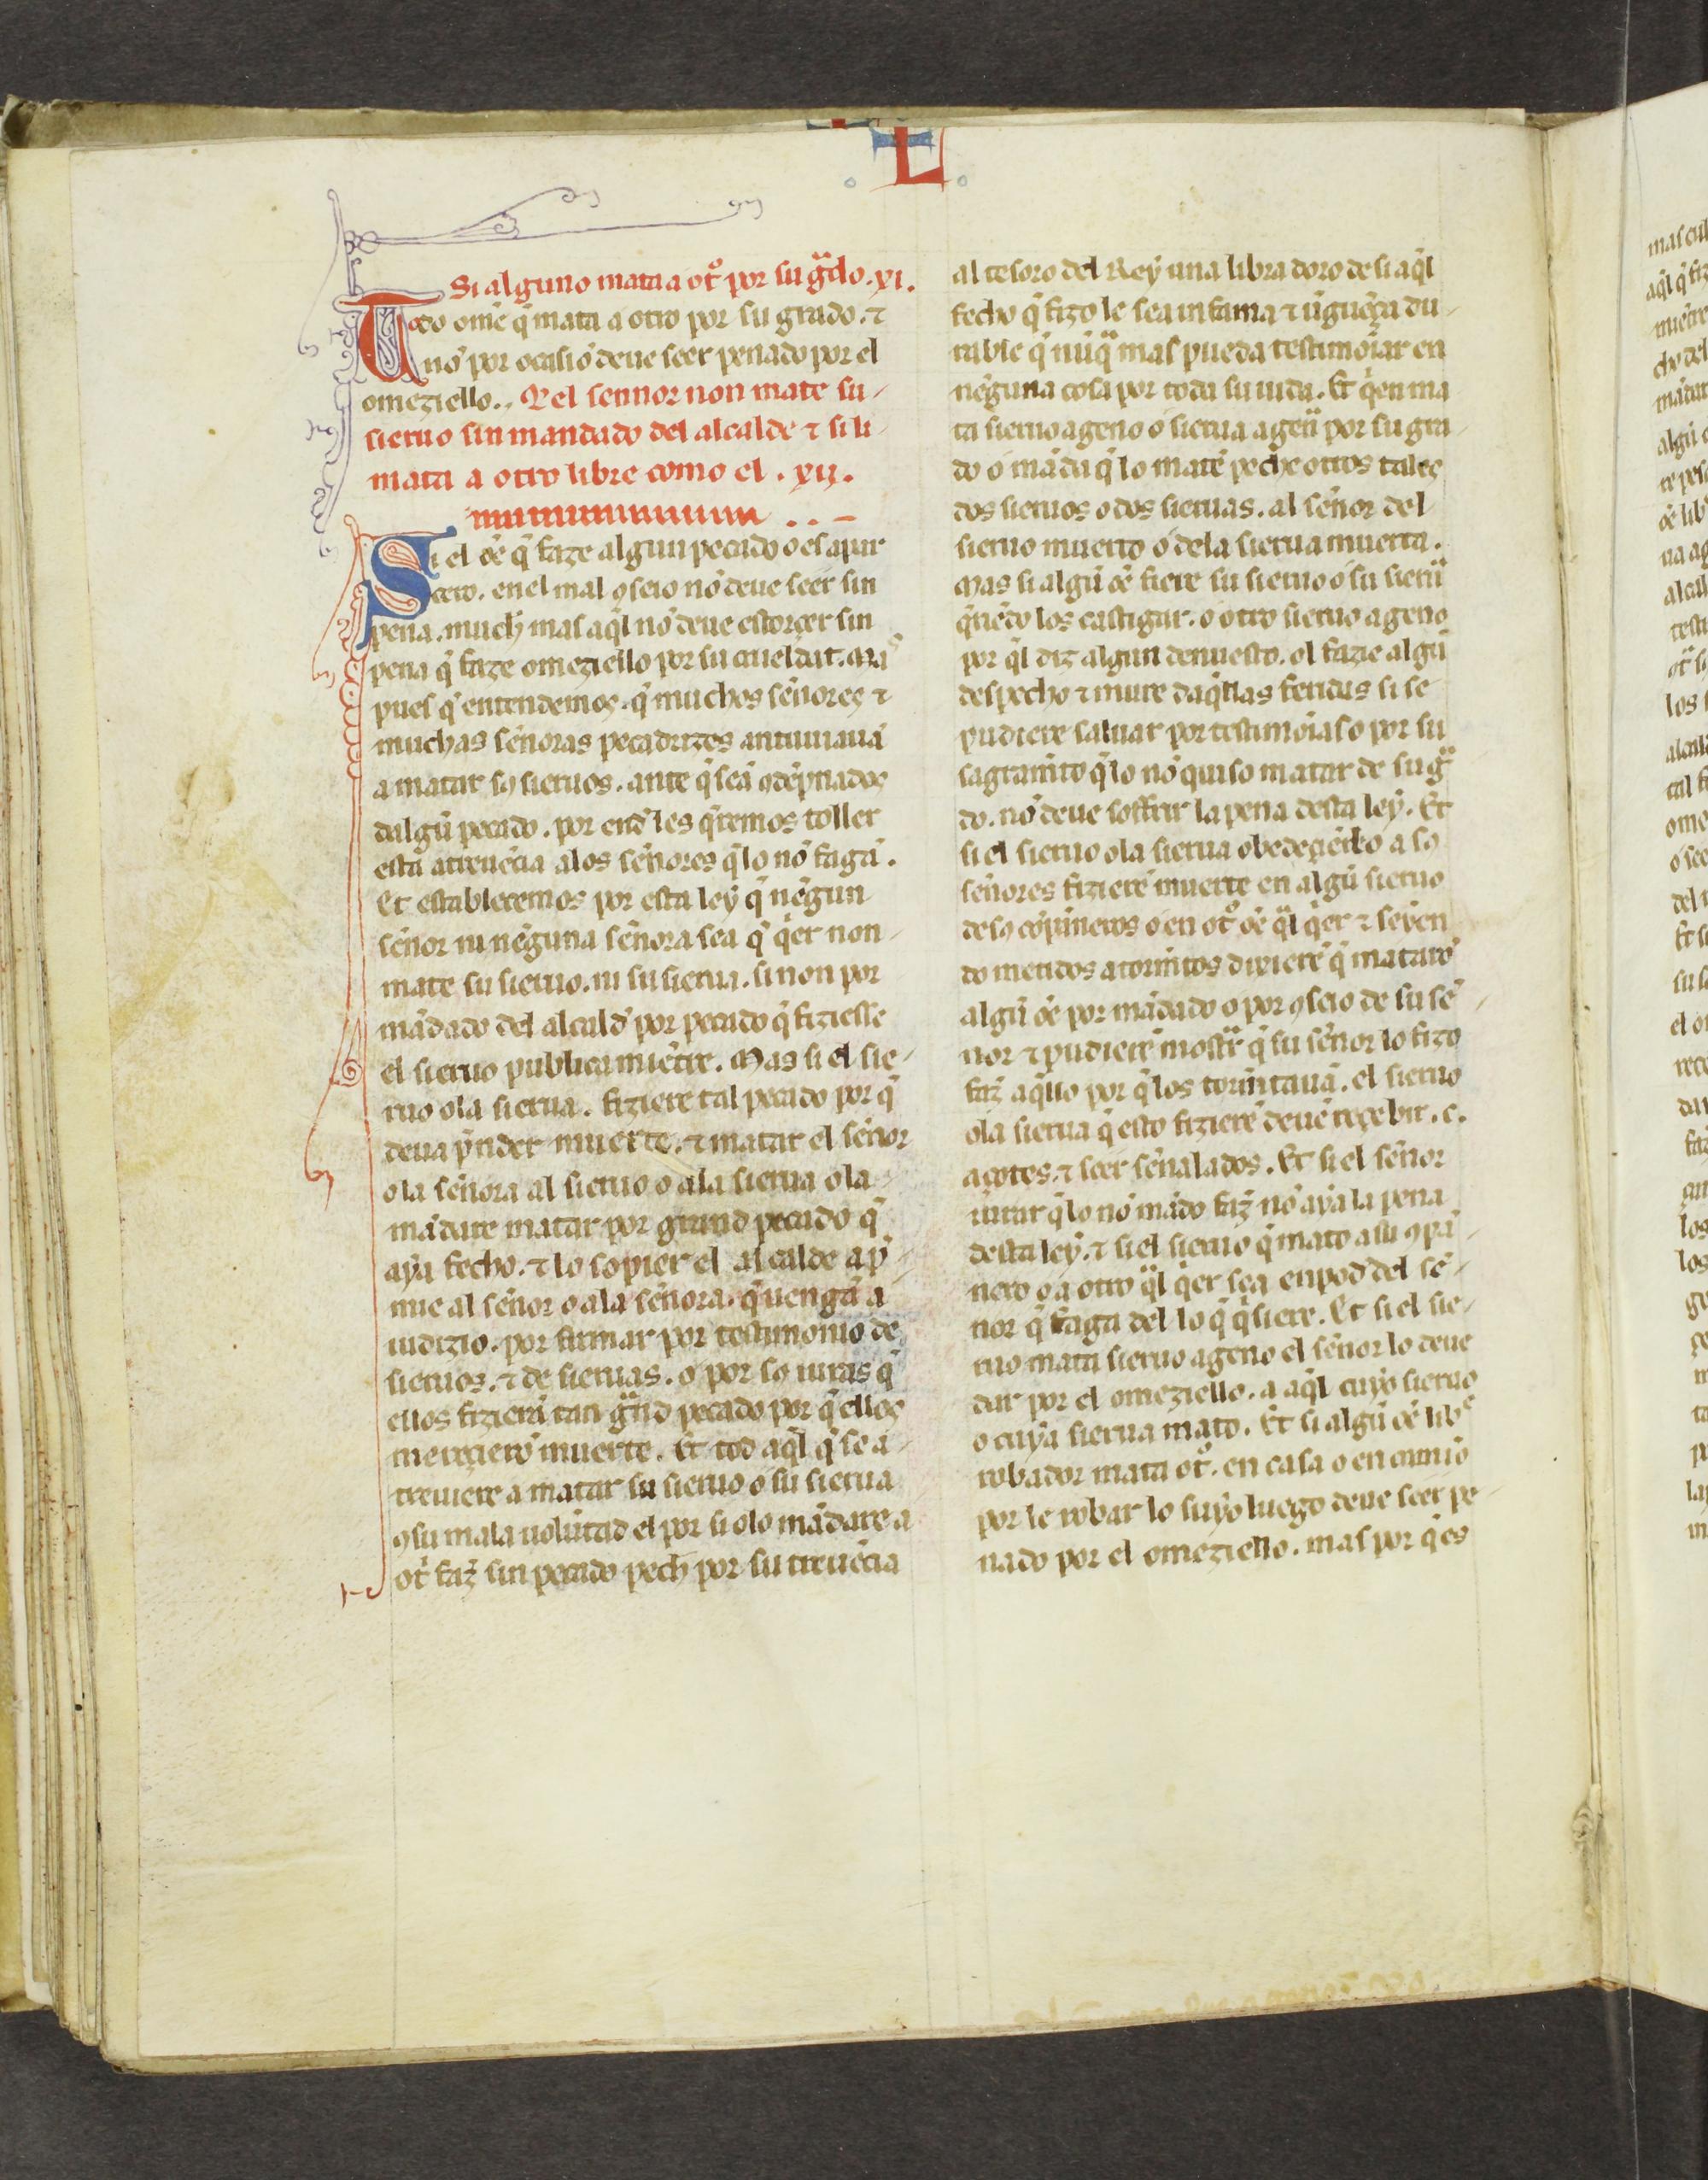 L
Si alguno mata a ot̃o por su g̃ado. xi.
Todo ome q̃ mata a otro por su grado. ⁊
nõ por ocasiõ deue seer penado por el
omeziello.. Q̃ el sennor non mate su-
sieruo sin mandado del alcalde ⁊ si li
mata a otro libre como el. xii.
Si el oẽ q̃ faze algun pecado o es apar
cero. en el mal ꝯseio nõ deue seer sin
pena. much̃ mas aq̃l nõ deue estorcer sin
pena q̃ faze omeziello por su crueldat. Mas
pues q̃ entendemos. q̃ muchos sẽnores ⁊
muchas sẽnoras pecadrizes antuuiauã
a matar sos sieruos. ante q̃ seã ꝯdẽpnados
dalgũ pecado. por end̃ les q̃remos toller
esta atreuẽcia a los sẽnores q̃ lo nõ fagã.
Et establecemos por esta ley q̃ nẽgun
sẽnor ni nẽguna sẽnora sea q̃ q̃er non-
mate su sieruo. ni su sierua. si non por
mãdado del alcald̃ por pecado q̃ fiziesse
el sieruo publica miẽtre. Mas si el sie-
ruo o la sierua. fiziere tal pecado por q̃
deua p̃nder muerte. ⁊ matar el sẽnor
o la sẽnora al sieruo o a la sierua o la-
mãdare matar por grand pecado q̃
aya fecho. ⁊ lo sopier el alcalde ap̃-
mie al sẽnor o a la sẽnora. q̃ uengã a
iudizio. por firmar por testimonio de
sieruos. ⁊ de sieruas. o por sos iuras q̃
ellos fizierã tan g̃nd pecado por q̃ ellos
mereçierõ muerte. Et tod aq̃l q̃ se a-
treuiere a matar su sieruo o su sierua
ꝯ su mala uolũtad el por si o lo mãdare a
ot̃ faz̃ sin pecado pech̃ por su treuẽcia
al tesoro del Rey una libra doro de si aq̃l
fecho q̃ fizo le sea in fama ⁊ ũguẽça du-
rable q̃ nũq̃ mas pueda testimoiar en
nẽguna cosa por toda su uida. Et q̃en ma
ta sieruo ageno o sierua agẽa por su gra-
do o mãda q̃ lo matẽ peche otros tales
dos sieruos o dos sieruas. al sẽnor del
sieruo muerto o de la sierua muerta.
Mas si algũ oẽ fiere su sieruo o su sierũ
q̃riẽdo los castigar. o otro sieruo ageno
por q̃l diz algun denuesto. ol fazie algũ
despecho ⁊ mure daq̃llas feridas si se
pudiere saluar por testimoias o por su
sagramẽto q̃ lo nõ quiso matar de su g̃
do. nõ deue soffrir la pena desta ley. Et
si el sieruo o la sierua obedeçiẽdo a so
sẽnores fizierẽ muerte en algũ sieruo
de sos cõpñeros o en ot̃o oẽ q̃l q̃er ⁊ seyen
do metidos a tormẽtos dixierẽ q̃ matarõ
algũ oẽ por mãdado o por ꝯseio de su sẽ-
nor ⁊ pudierẽ mostr̃ q̃ su sẽnor lo fizo
faz̃ aq̃llo por q̃ los tormẽtauã. el sieruo
o la sierua q̃ esto fizierẽ deuẽ reçebir. c.
açotes. ⁊ seer sẽnalados. Et si el sẽnor
iurar q̃ lo nõ mãdo faz̃ nõ aya la pena
desta ley. ⁊ si el sieruo q̃ mato a su ꝯpã-
nero o a otro q̃l q̃er sea en pod̃ del sẽ-
nor q̃ faga del lo q̃ q̃siere. Et si el sie-
ruo mata sieruo ageno el sẽnor lo deue
dar por el omeziello. a aq̃l cuyo sieruo
o cuya sierua mato. Et si algũ oẽ libᵉ
robador mata ot̃o. en casa o en camio
por le robar lo suyo luego deue seer pe-
nado por el omeziello. mas por q̃ es